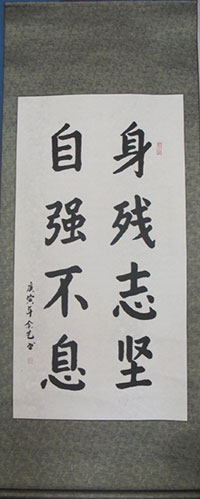 身残志坚
自强不息
庚寅年